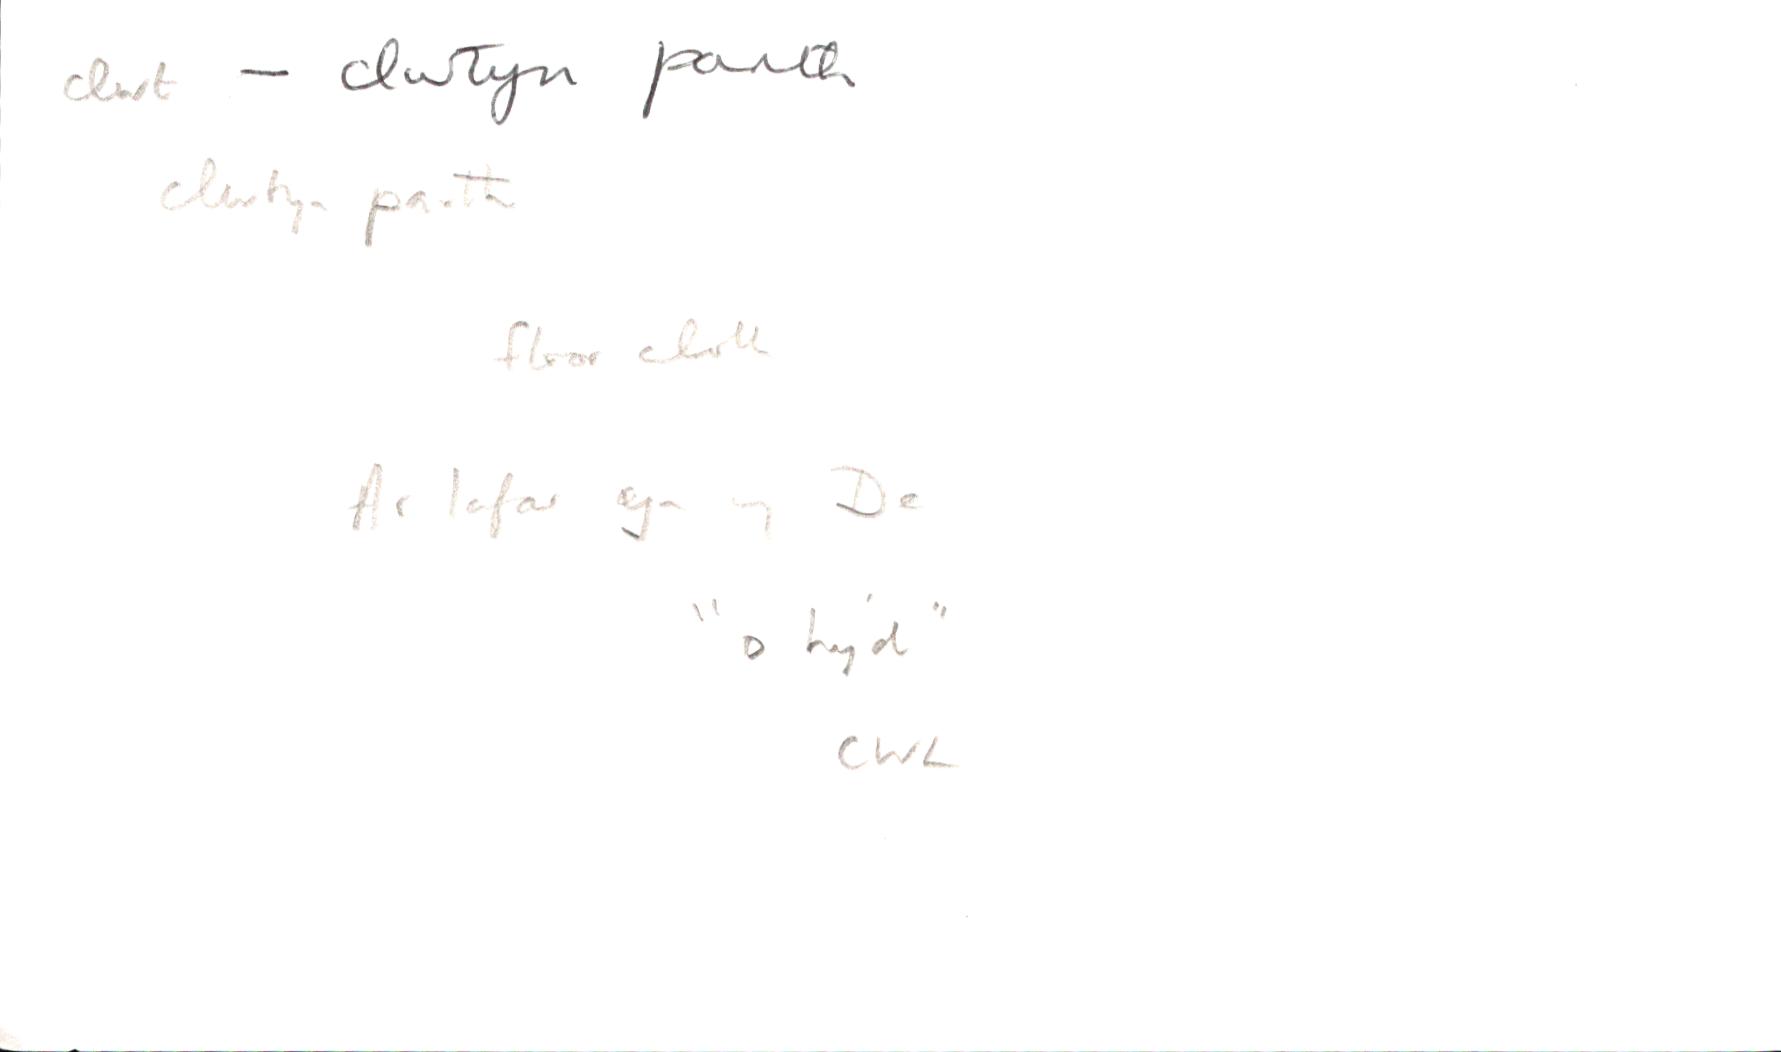 clwt — clwtyn parth
clwtyn parth
floor cloth
Ar lafar yn y De
"o hyd"
CWL